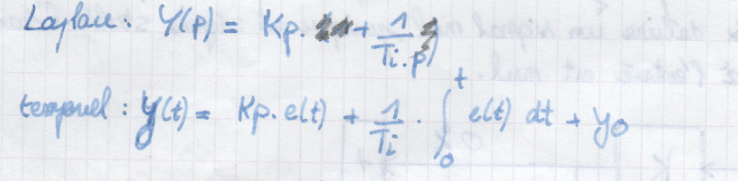 Laplace : Y(p) = Kp. + 1/Ti.p
temporel : y(t) = Kp. e(t) + 1/Ti . ∫₀ᵗ e(t) dt + y₀